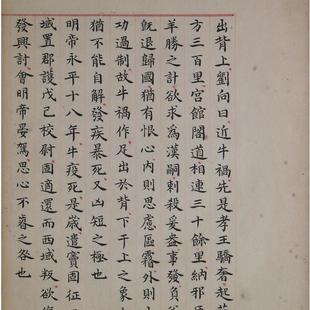 出背上劉向曰近牛禍先是孝王驕奢起
方三百里宮館閣道相連三十餘里納邪
羊勝之計欲求為漢嗣刺殺爰盎事發負
既退歸國猶有恨心內則思慮區霿外則
功過制故牛禍作足出於背下干上之象
猶不能自解發疾暴死又凶短之極也
明帝永平十八年牛疫死是歲遣竇固征
域置都護戊己校尉固適還而西域叛欲
發興討會明帝晏駕思心不睿之咎也